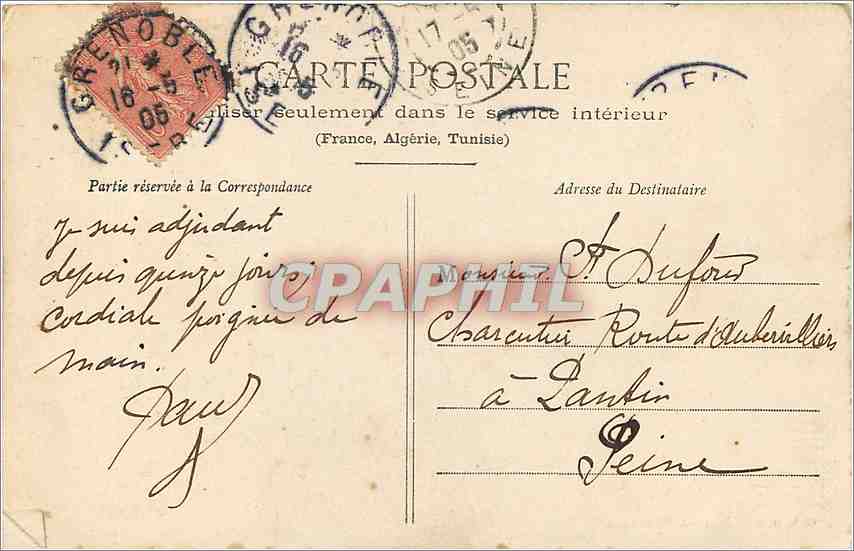 GRENOBLE
21 * 16 -5 05
ISERE
GRENOBLE
16
ISERE
17 -5 05
SEINE
CARTE POSTALE
utiliser seulement dans le service intérieur
(France, Algérie, Tunisie)
Partie réservée à la Correspondance
Je suis adjudant
depuis quinze jours,
Cordiale poignée de
main.
Paul
Adresse du Destinataire
Monsieur Ct Dufour
Charcutier Route d'Aubervilliers
à Pantin
Seine
CPAPHIL